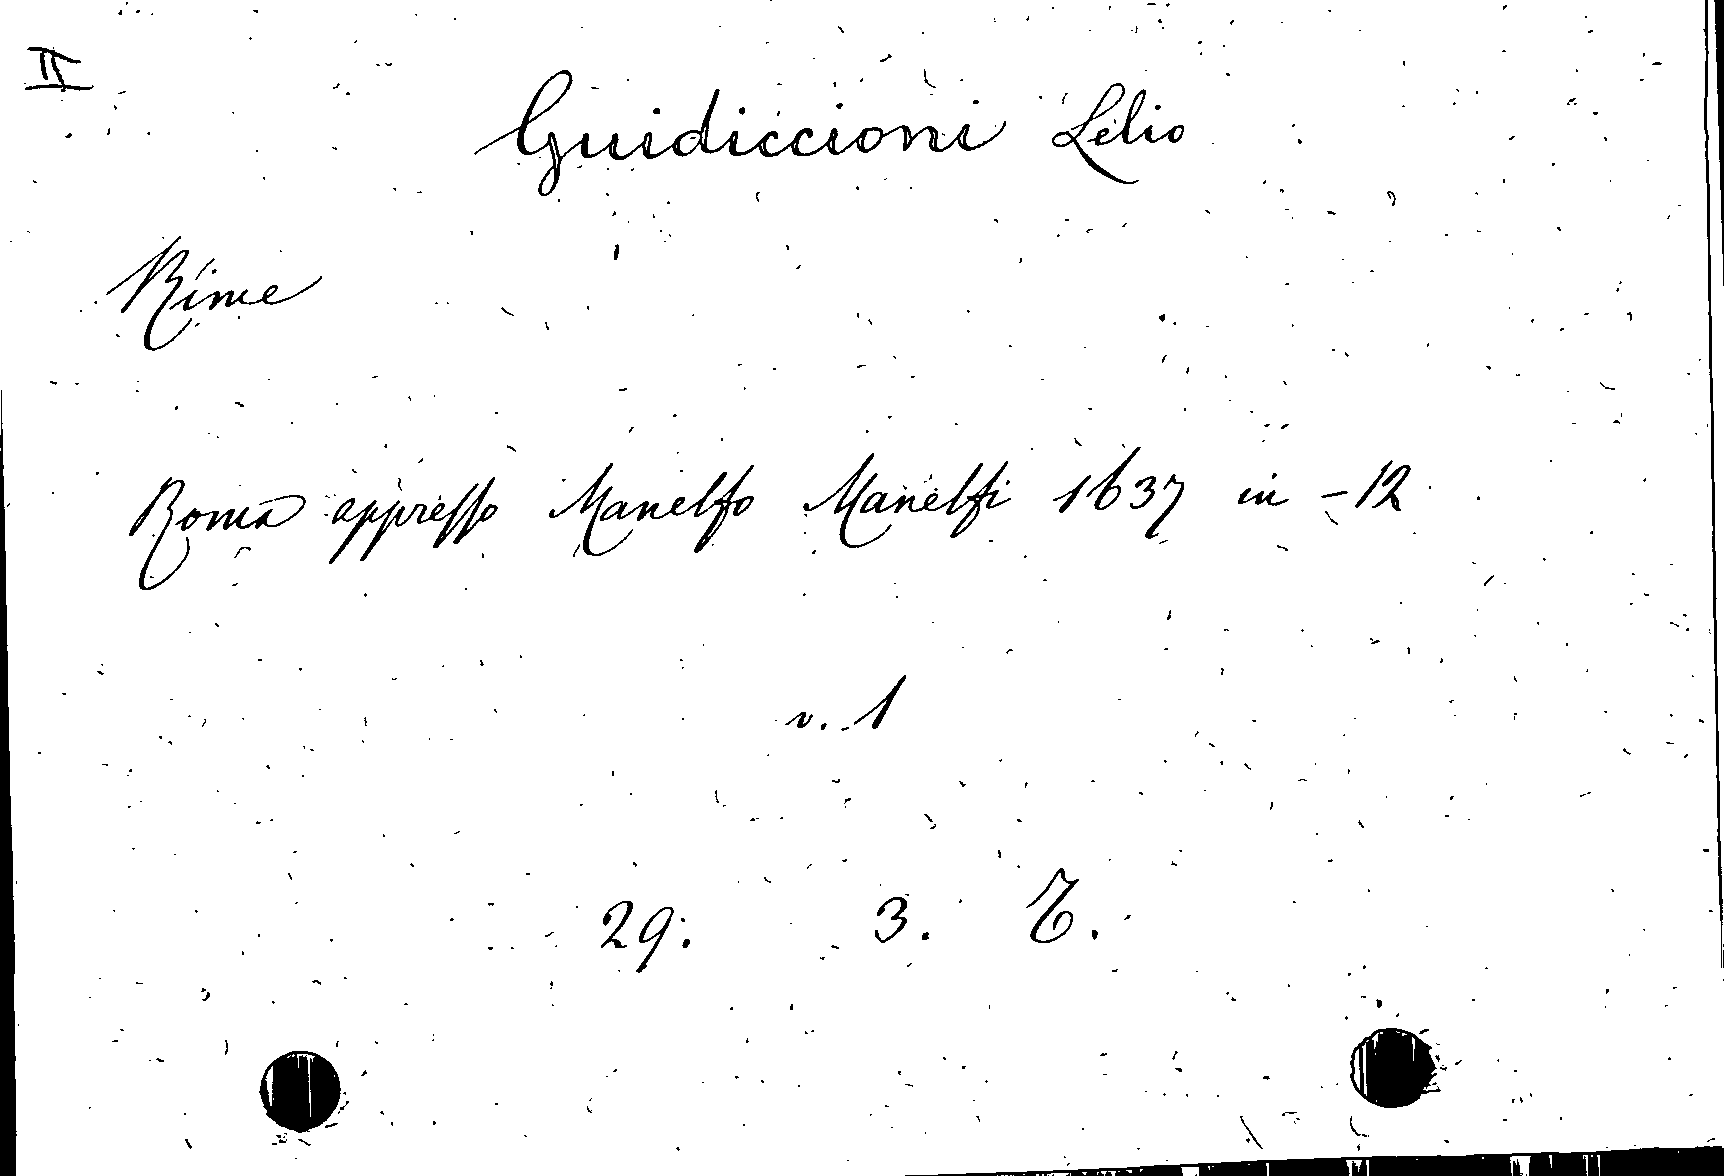 II
Guidiccioni Lelio
Rime
Roma appresso Manelfo Manelfi 1637 in-12
v. 1
29. 3.